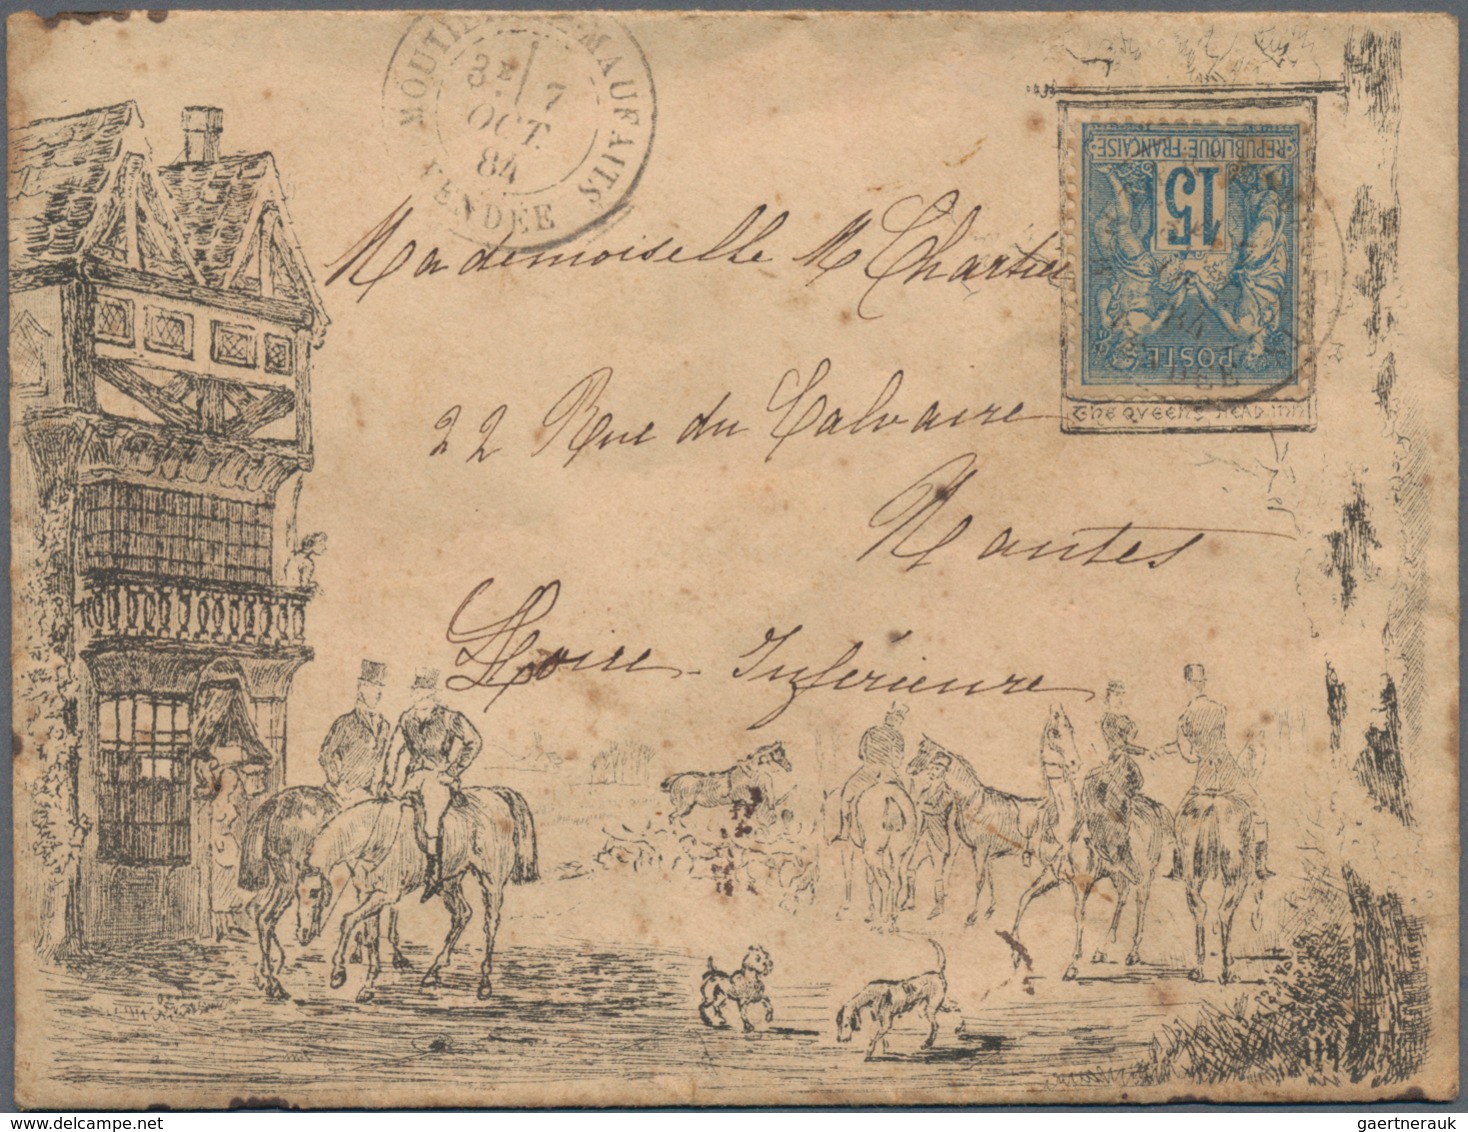 MOUTIL MAUFAITS
3E 7
OCT
84
VENDÉE
REPUBLIQUE FRANÇAISE
15
POSTE
The Queen's HEAD INN
Mademoiselle M Chartier
22 Rue du Calvaire
Nantes
Loire Inférieure
gaertnerauk